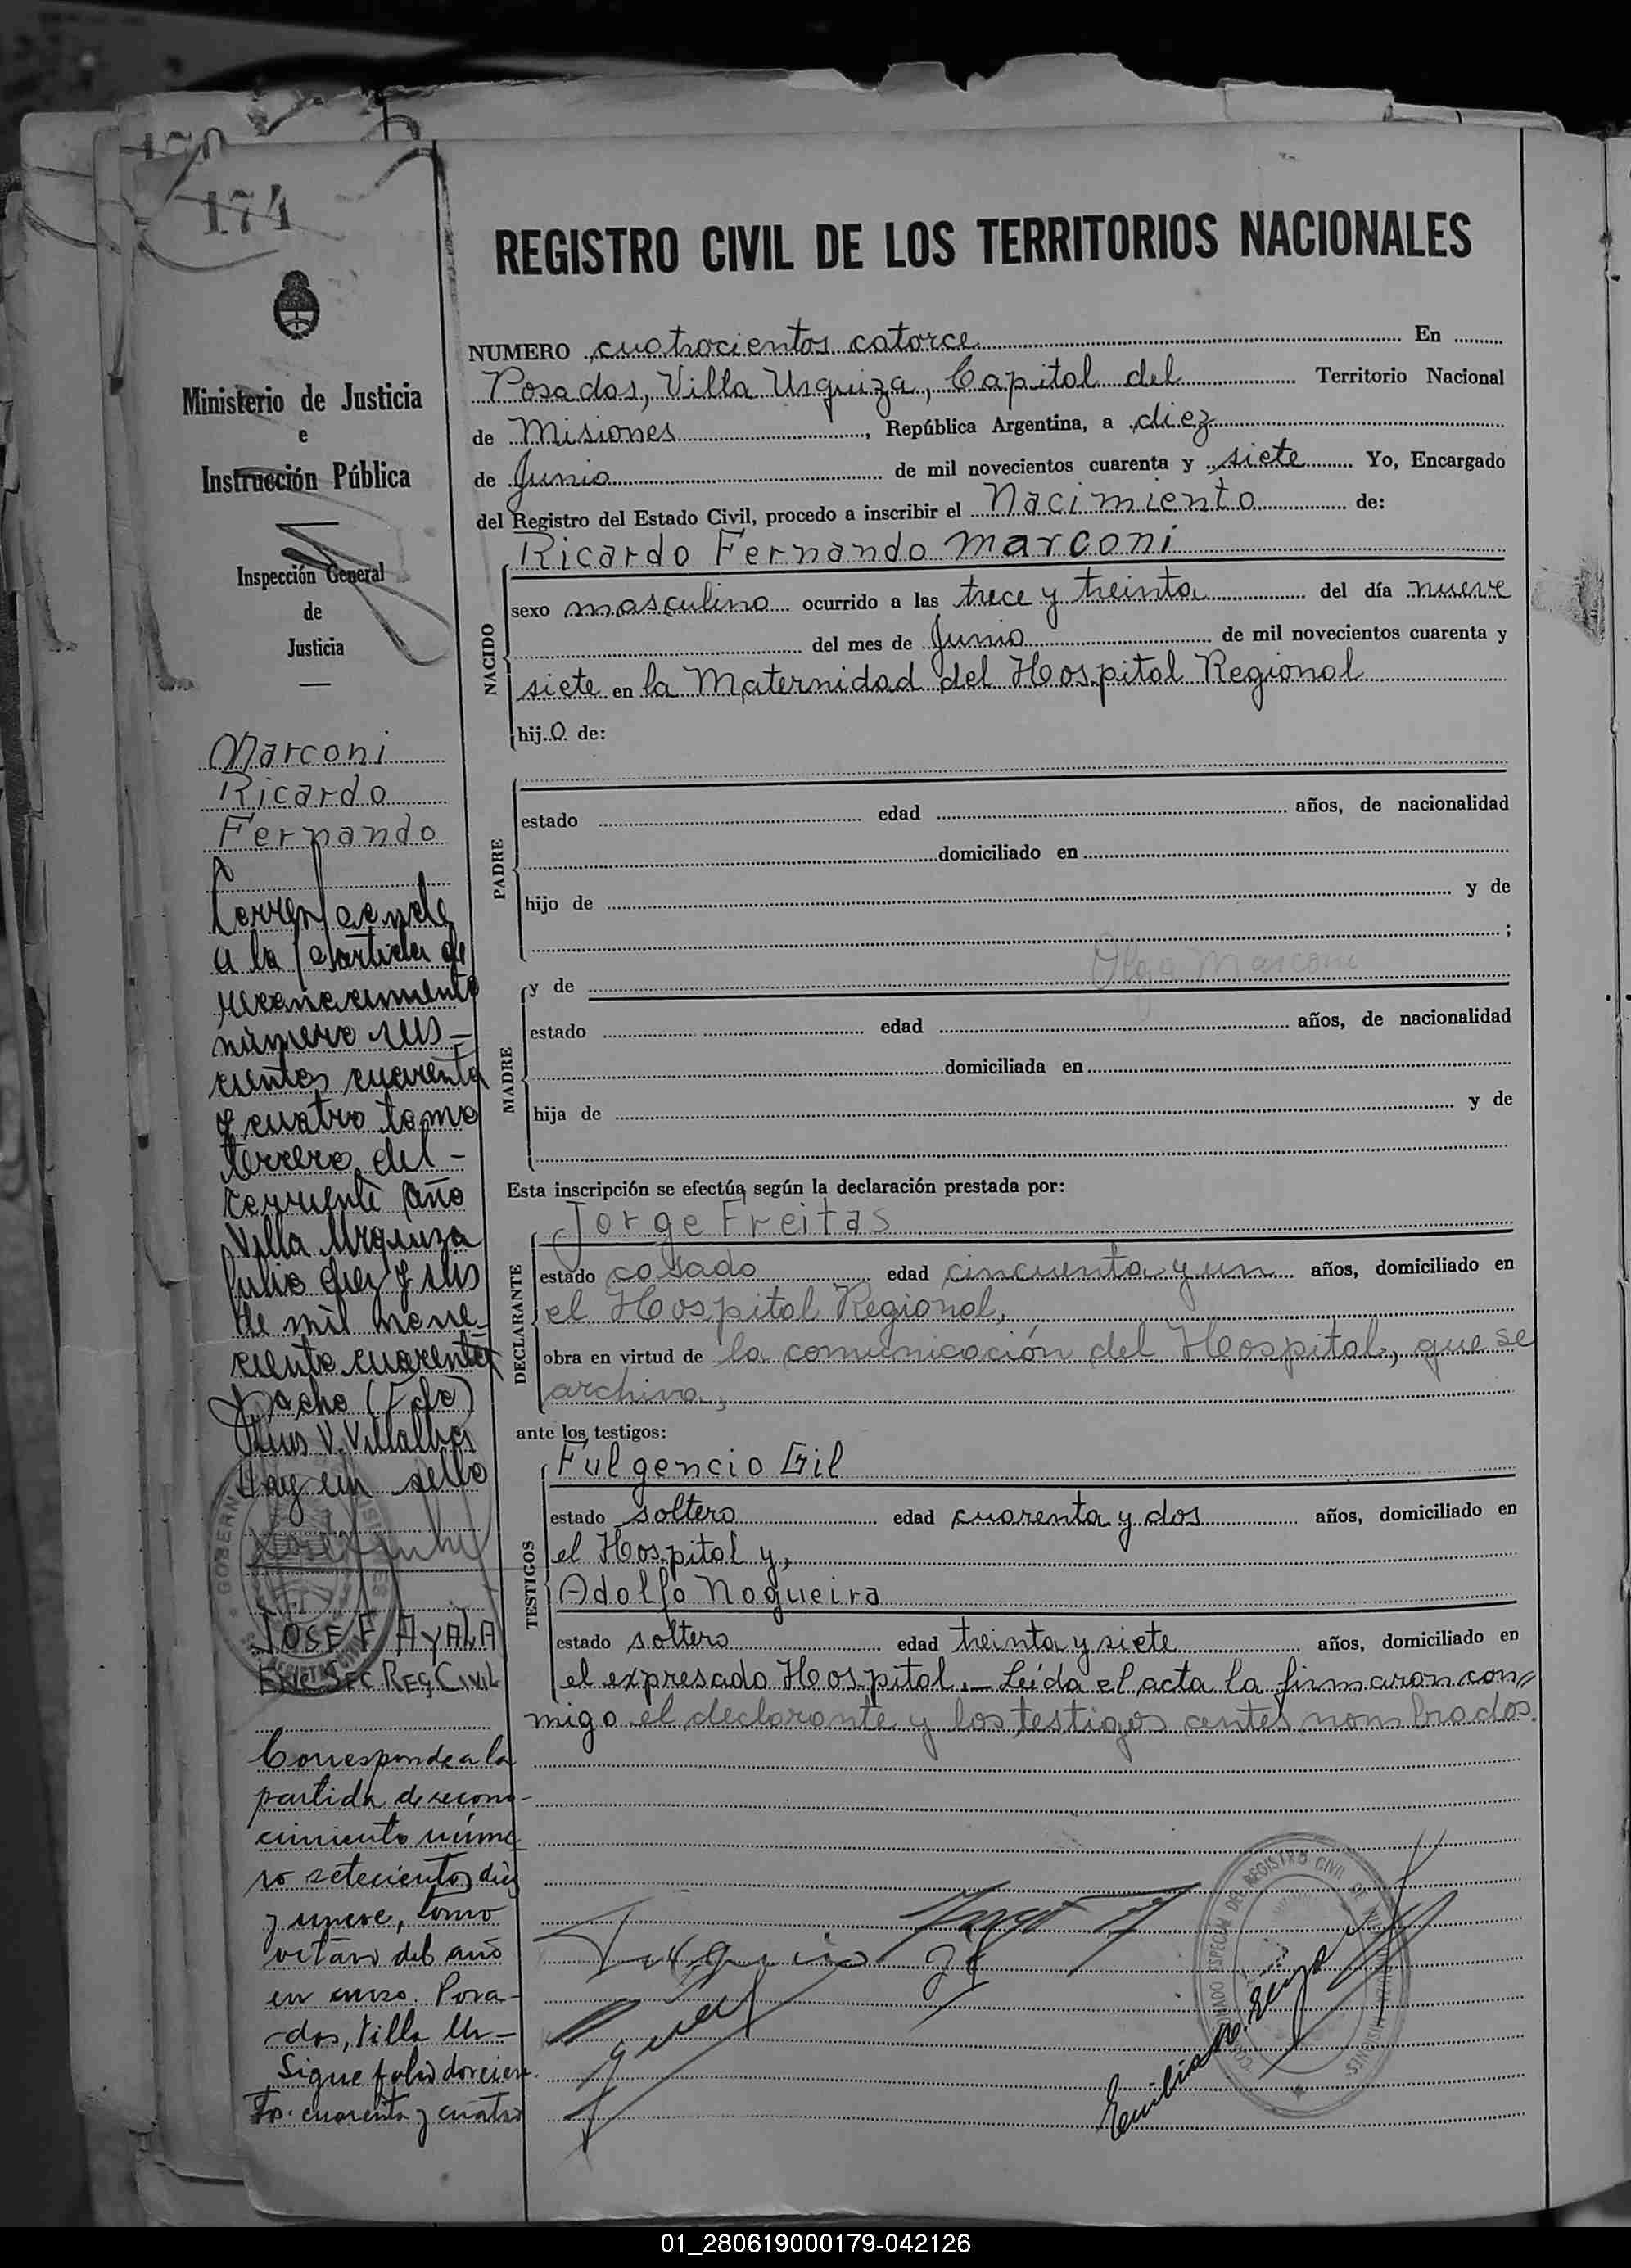 174
REGISTRO CIVIL DE LOS TERRITORIOS NACIONALES
Ministerio de Justicia
e
Instrucción Pública
Inspección General
de
Justicia
Marconi
Ricardo
Fernando
Corresponde
a la partida de
reconocimiento
número seis-
cientos cuarenta
y cuatro tomo
tercero del -
corriente año
Villa Urquiza
Julio diez y seis
de mil nove-
cientos cuarenta
y ocho (Fdo)
Luis V. Villalba
Hay un sello
JOSE F. AYALA
ENC. SEC REG. CIVIL
Corresponde a la
partida de recono-
cimiento núme-
ro setecientos diez
y nueve, tomo
octavo del año
en curso. Posa-
das, Villa Ur-
Sigue folio doscien-
tos cuarenta y cuatro
NUMERO cuatrocientos catorce En
Posadas, Villa Urquiza, Capital del Territorio Nacional
de Misiones, República Argentina, a diez
de Junio de mil novecientos cuarenta y siete Yo, Encargado
del Registro del Estado Civil, procedo a inscribir el Nacimiento de:
Ricardo Fernando Marconi
NACIDO
sexo masculino ocurrido a las trece y treinta del día nueve
del mes de Junio de mil novecientos cuarenta y
siete en la Maternidad del Hospital Regional
hijo de:
PADRE
estado edad años, de nacionalidad
domiciliado en
hijo de y de
;
Olga Marconi
y de
MADRE
estado edad años, de nacionalidad
domiciliada en
hija de y de
Esta inscripción se efectúa según la declaración prestada por:
Jorge Freitas
DECLARANTE
estado casado edad cincuenta y un años, domiciliado en
el Hospital Regional,
obra en virtud de la comunicación del Hospital, que se
archiva,
ante los testigos:
Fulgencio Gil
TESTIGOS
estado soltero edad cuarenta y dos años, domiciliado en
el Hospital y,
Adolfo Nogueira
estado soltero edad treinta y siete años, domiciliado en
el expresado Hospital.- Leída el acta la firmaron con//
migo el declarante y los testigos antes nombrados.
01_280619000179-042126